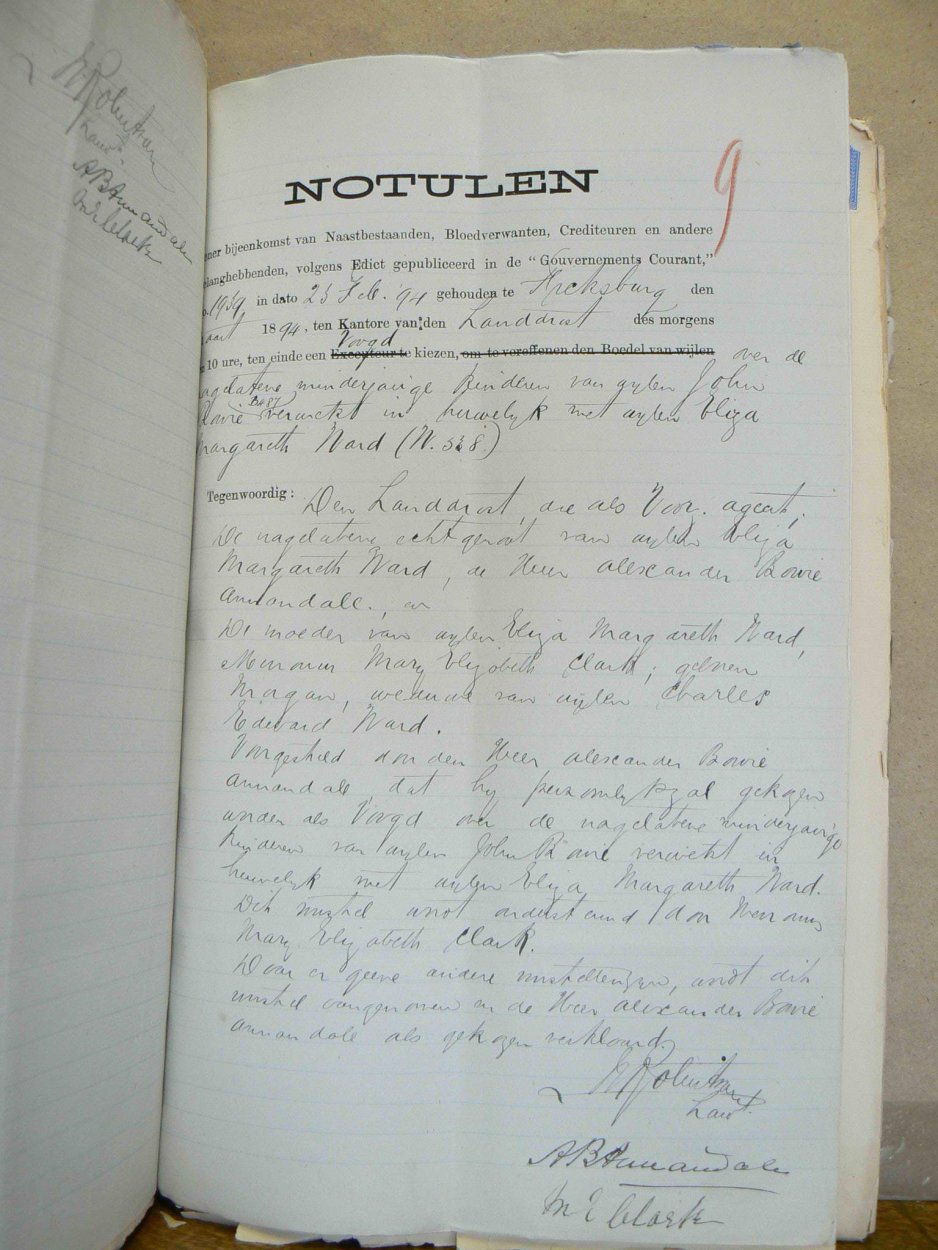 NOTULEN
9
ner bijeenkomst van Naastbestaanden, Bloedverwanten, Crediteuren en andere
elanghebbenden, volgens Edict gepubliceerd in de "Gouvernements Courant,"
in dato 23 Feb. '94 gehouden te Ficksburg den
aart 1894, ten Kantore van den Landdrost des morgens
10 ure, ten einde een Voogd Executeur te kiezen, om te vereffenen den Boedel van wijlen over de
agelatene minderjarige kinderen van wylen John
Bowie verwekt in huwelyk met wylen Eliza
Margareth Ward (N. 538.)
Tegenwoordig: Den Landdrost, die als Voor. ageert;
De nagelatene echtgenoot van wylen Eliza
Margareth Ward, de Heer Alexander Bowie
Annandale., en
De moeder van wylen Eliza Margareth Ward,
Mevrouw Mary Elizabeth Clark; geboren
Morgan, weduwe van wylen Charles
Edward Ward.
Voorgesteld door den Heer Alexander Bowie
Annandale, dat hy persoonlyk zal gekozen
worden als Voogd over de nagelatene minderjarige
kinderen van wylen John Bowie verwekt in
huwelyk met wylen Eliza Margareth Ward.
Dit voorstel wordt ondersteund door Mevrouw
Mary Elizabeth Clark.
Daar er geene andere voorstellingen, wordt dit
voorstel aangenomen en de Heer Alexander Bowie
Annandale als gekozen verklaard.
Landt.
A B Annandale
M E Clark